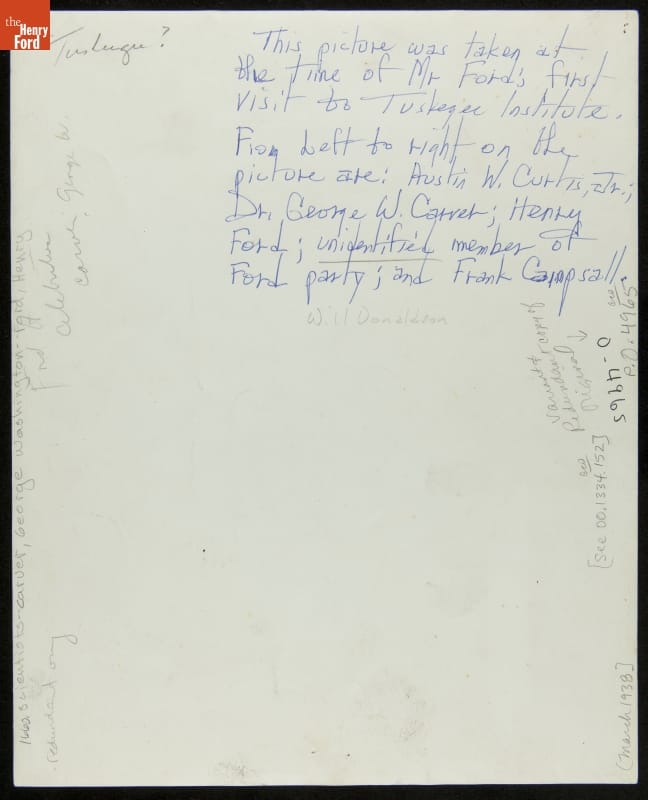 the
Henry
Ford
Tuskegee?
This picture was taken at
the time of Mr Ford's first
visit to Tuskegee Institute.
From Left to right on the
picture are: Austin W. Curtis, Jr.;
Dr. George W. Carver; Henry
Ford; unidentified member of
Ford party; and Frank Campsall.
Will Donaldson
Celebrities
Carver, George W.
Ford
1662 Scientists--Carver, George Washington--Ford, Henry
redundant
copy of
Redundant
original
see
[see 00.1334.152]
0-4965
see
P.O. 4965
[March 1938]